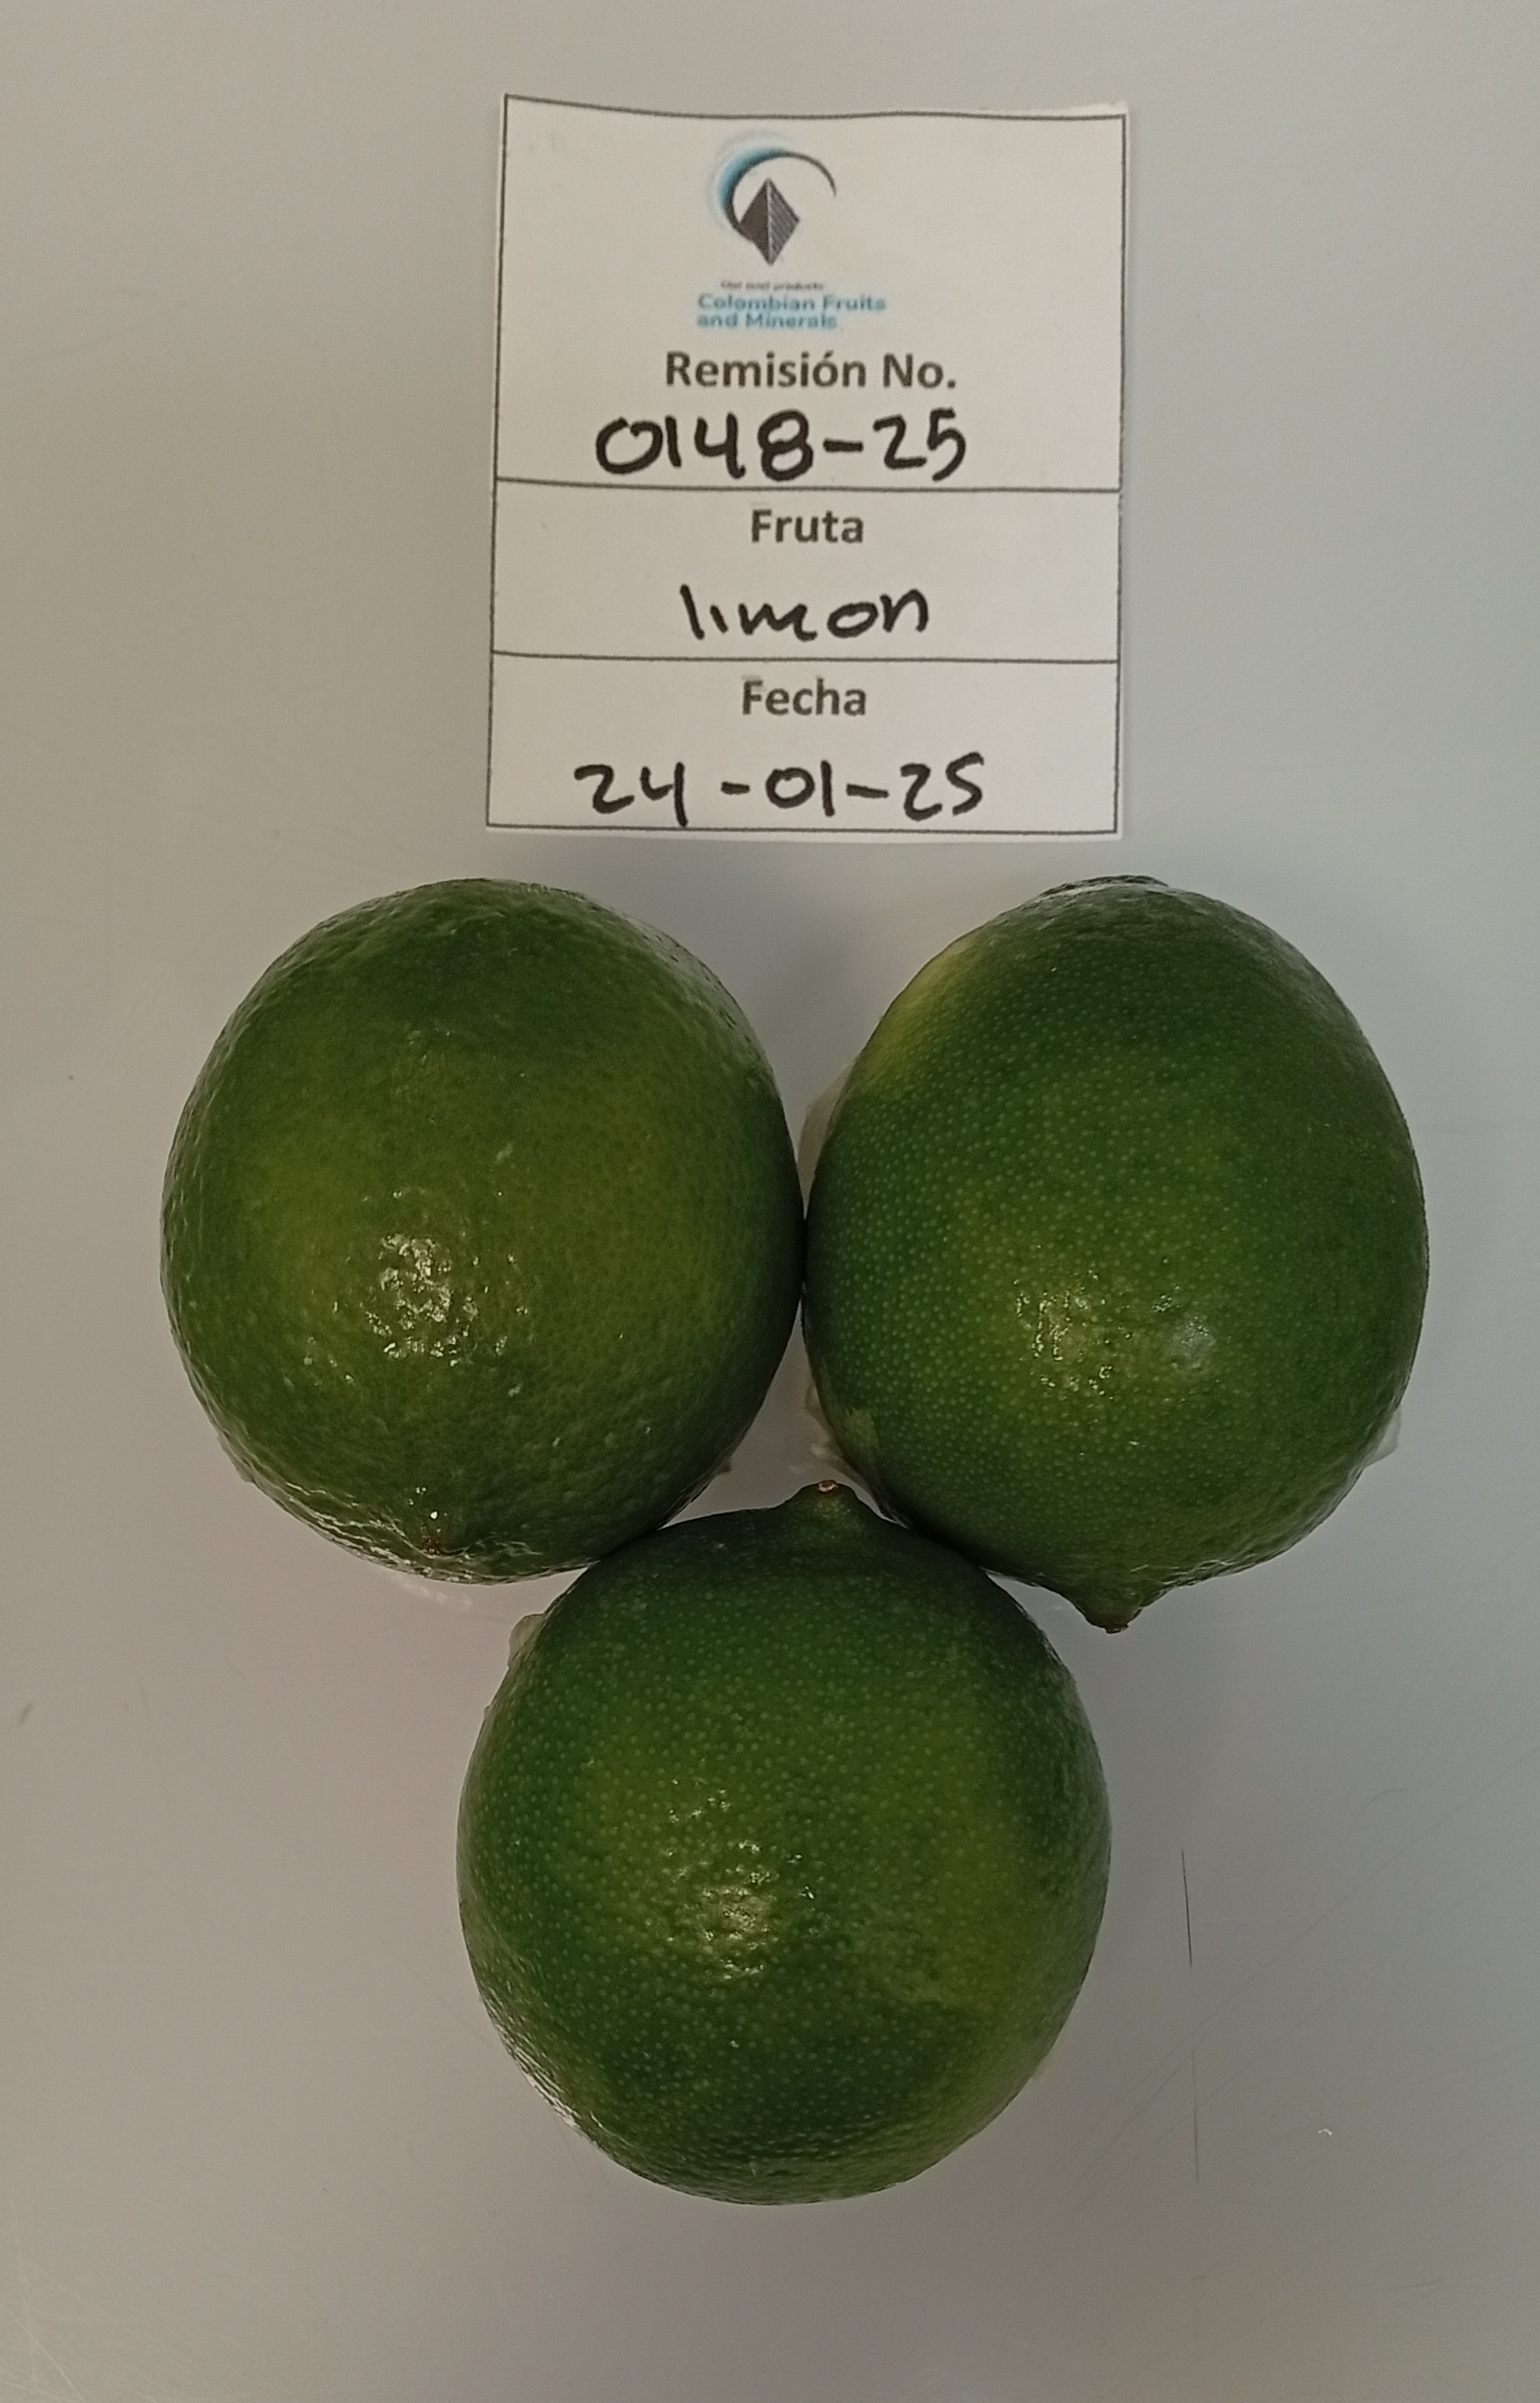 Colombian Fruits
and Minerals
Remisión No.
0148-25
Fruta
limon
Fecha
24-01-25